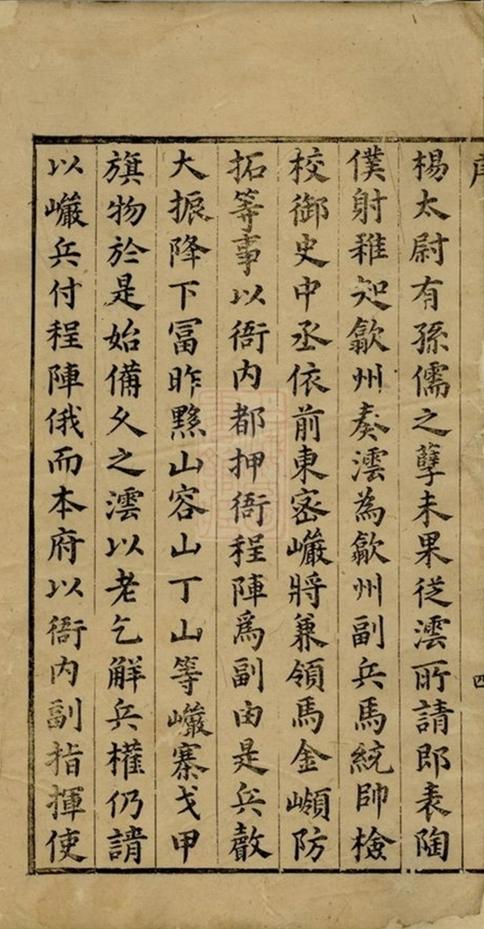 楊太尉有孫儒之孽未果從澐所請即表陶
僕射稚知歙州奏澐為歙州副兵馬統帥檢
校御史中丞依前東宻巗將兼領馬金嶺防
拓等事以衙内都押衙程陣爲副由是兵聲
大振降下冨昨黟山容山丁山等巗寨戈甲
旗物於是始備久之澐以老乞解兵權仍請
以巗兵付程陣俄而本府以衙内副指揮使
四